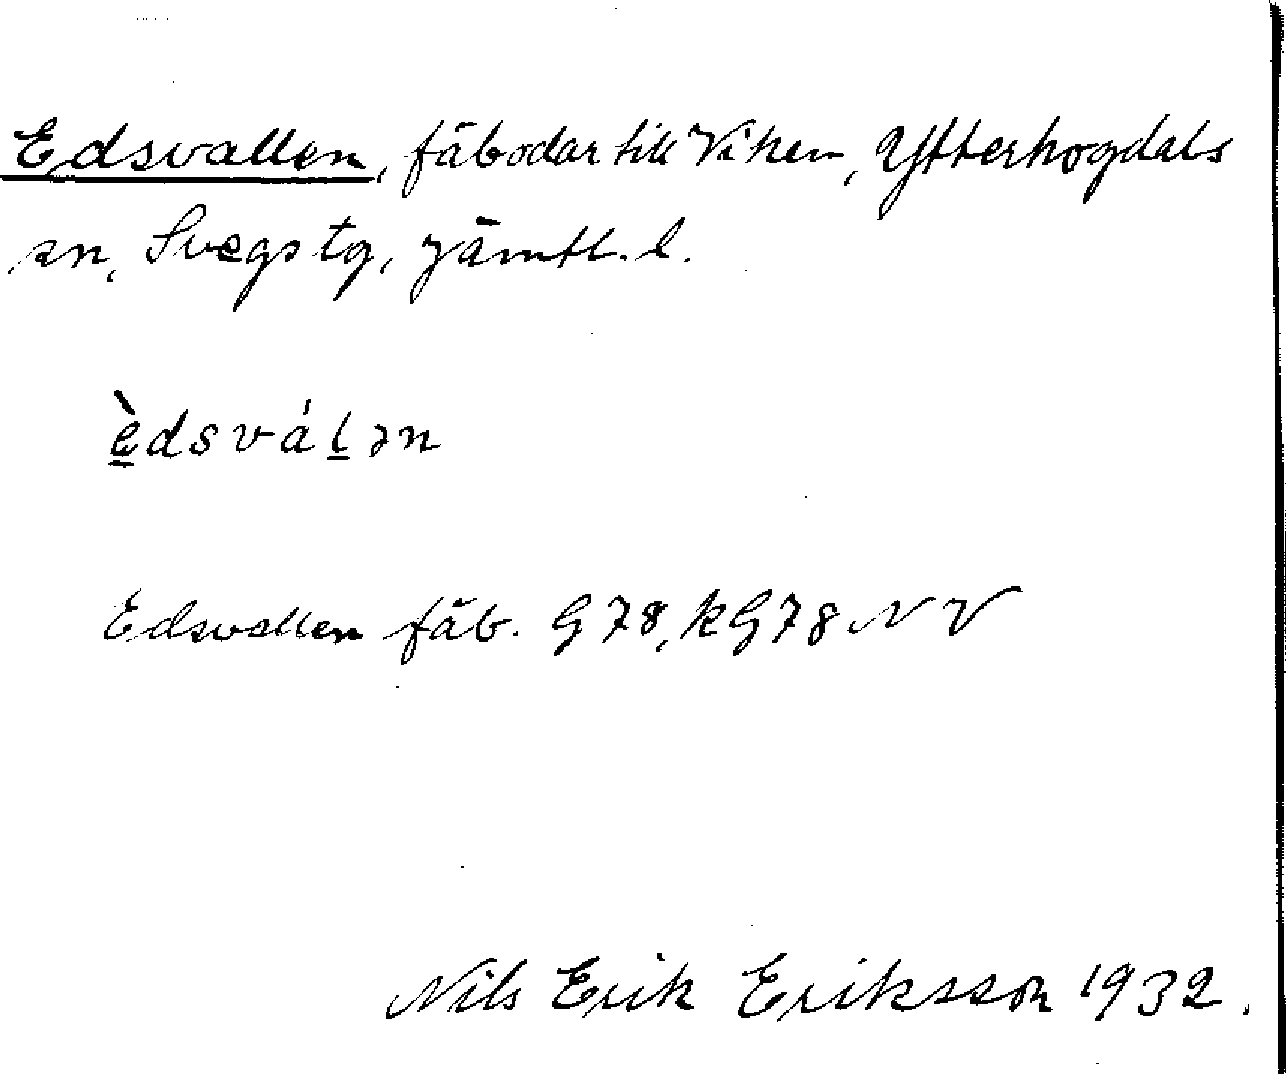 Edsvallen, fäbodar till Viken, Ytterhogdals
sn, Svegs tg, Jämtl. l.
è̱dsváḻən
Edsvallen fäb. G 78, kG 78 NV
Nils Erik Eriksson 1932.